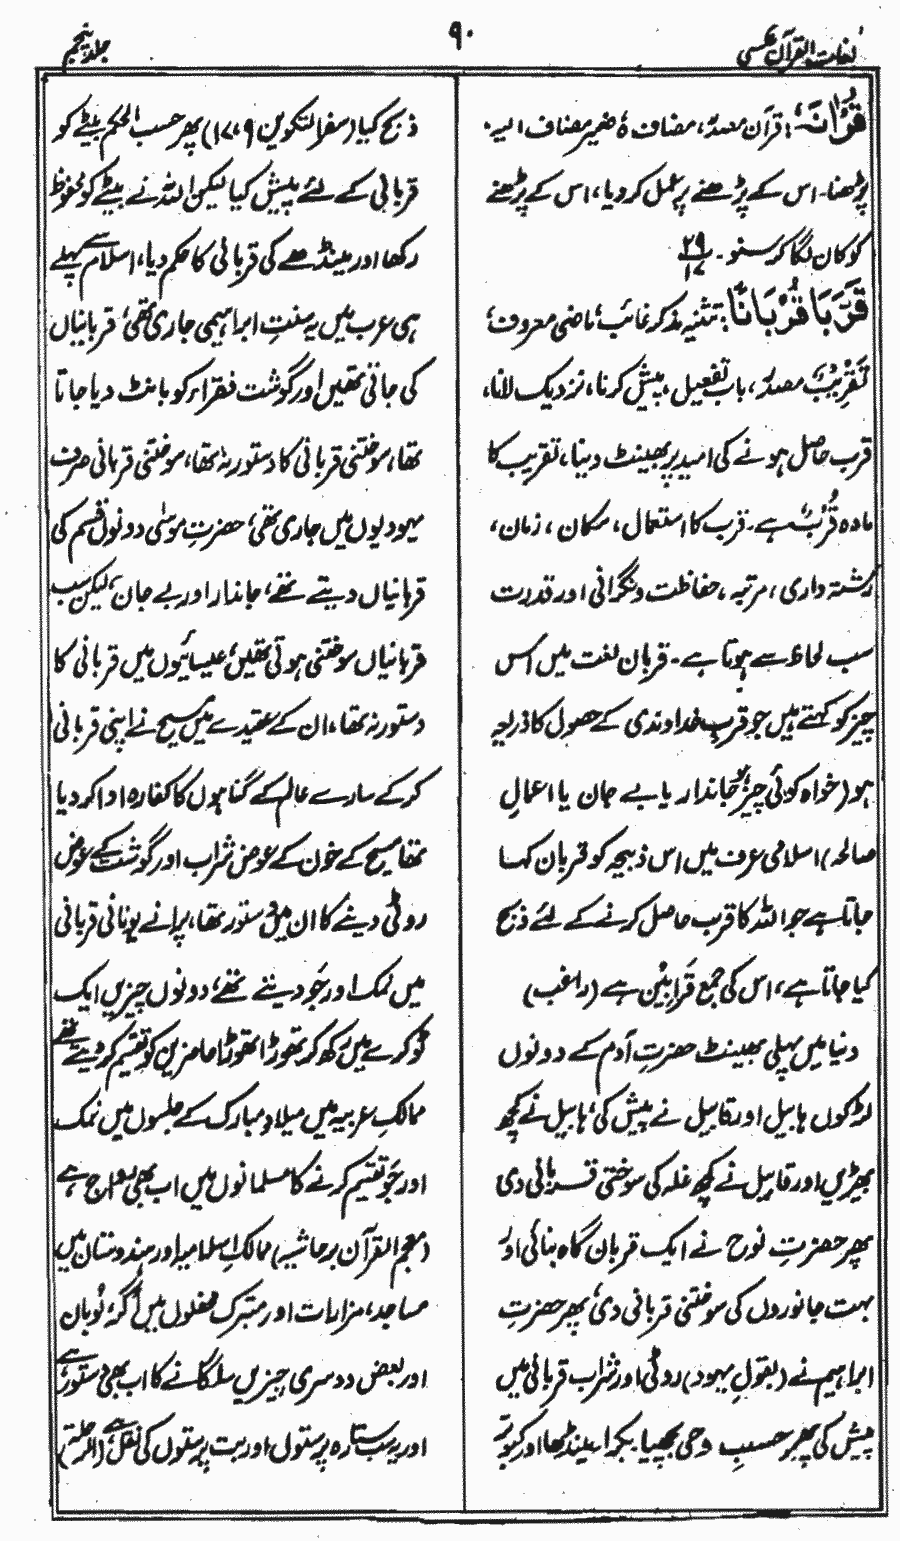 لغات القرآن عکسی
۹۰
جلد پنجم
قُرْاٰنَہٗ: قرآن مصدر، مضاف ہٗ ضمیر مضاف الیہ۔
پڑھنا۔ اس کے پڑھنے پر عمل کر دیا، اس کے پڑھنے
کو کان لگا کر سنو۔ ۲۹/۱۷
قَرَّبَا قُرْبَانًا: تثنیہ مذکر غائب، ماضی معروف،
تَقْرِیْبٌ مصدر، باب تفعیل، پیش کرنا، نزدیک لانا،
قرب حاصل ہونے کی امید پر بھینٹ دینا، تقریب کا
مادہ قُرْبٌ ہے۔ قرب کا استعمال، مکان، زمان،
رشتہ داری، مرتبہ، حفاظت و نگرانی اور قدرت
سب لحاظ سے ہوتا ہے۔ قربان لغت میں اس
چیز کو کہتے ہیں جو قربِ خداوندی کے حصول کا ذریعہ
ہو (خواہ کوئی چیز ہو جاندار یا بے جان یا اعمالِ
صالحہ) اسلامی عرف میں اس ذبیحہ کو قربان کہا
جاتا ہے جو اللہ کا قرب حاصل کرنے کے لئے ذبح
کیا جاتا ہے، اس کی جمع قَرَابِیْن ہے (راغب)
دنیا میں پہلی بھینٹ حضرتِ آدم کے دونوں
لڑکوں ہابیل اور قابیل نے پیش کی، ہابیل نے کچھ
بھیڑیں اور قابیل نے کچھ غلہ کی سوختی قربانی دی
پھر حضرتِ نوح نے ایک قربان گاہ بنائی اور
بہت جانوروں کی سوختنی قربانی دی، پھر حضرتِ
ابراہیم نے (بقولِ یہود) روٹی اور شراب قربانی میں
پیش کی پھر حسبِ وحی بچھیا، بکرا، مینڈھا اور کبوتر
ذبح کیا (سفر التکوین ۱۷،۹) پھر حسب الحکم بیٹے کو
قربانی کے لئے پیش کیا لیکن اللہ نے بیٹے کو محفوظ
رکھا اور مینڈھے کی قربانی کا حکم دیا، اسلام سے پہلے
ہی عرب میں یہ سنتِ ابراہیمی جاری تھی، قربانیاں
کی جاتی تھیں اور گوشت فقراء کو بانٹ دیا جاتا
تھا، سوختنی قربانی کا دستور نہ تھا، سوختنی قربانی صرف
یہودیوں میں جاری تھی، حضرتِ موسٰی دونوں قسم کی
قربانیاں دیتے تھے، جاندار اور بے جان، لیکن سب
قربانیاں سوختنی ہوتی تھیں، عیسائیوں میں قربانی کا
دستور نہ تھا، ان کے عقیدے میں مسیح نے اپنی قربانی
کر کے سارے عالم کے گناہوں کا کفارہ ادا کر دیا
تھا مسیح کے خون کے عوض شراب اور گوشت کے عوض
روٹی دینے کا ان میں دستور تھا، پرانے یونانی قربانی
میں نمک اور جَو دیتے تھے، دونوں چیزیں ایک
ٹوکرے میں رکھ کر تھوڑا تھوڑا حاضرین کو تقسیم کر دیتے تھے
ممالکِ عربیہ میں میلادِ مبارک کے جلسوں میں نمک
اور جَو تقسیم کرنے کا مسلمانوں میں اب بھی رواج ہے،
(معجم القرآن برحاشیہ) ممالکِ اسلامیہ اور ہندوستان میں
مساجد، مزارات اور متبرک محفلوں میں اگر، لُوبان
اور بعض دوسری چیزیں سلگانے کا اب بھی دستور ہے
اور یہ سب ستارہ پرستوں اور بت پرستوں کی نقل ہے،